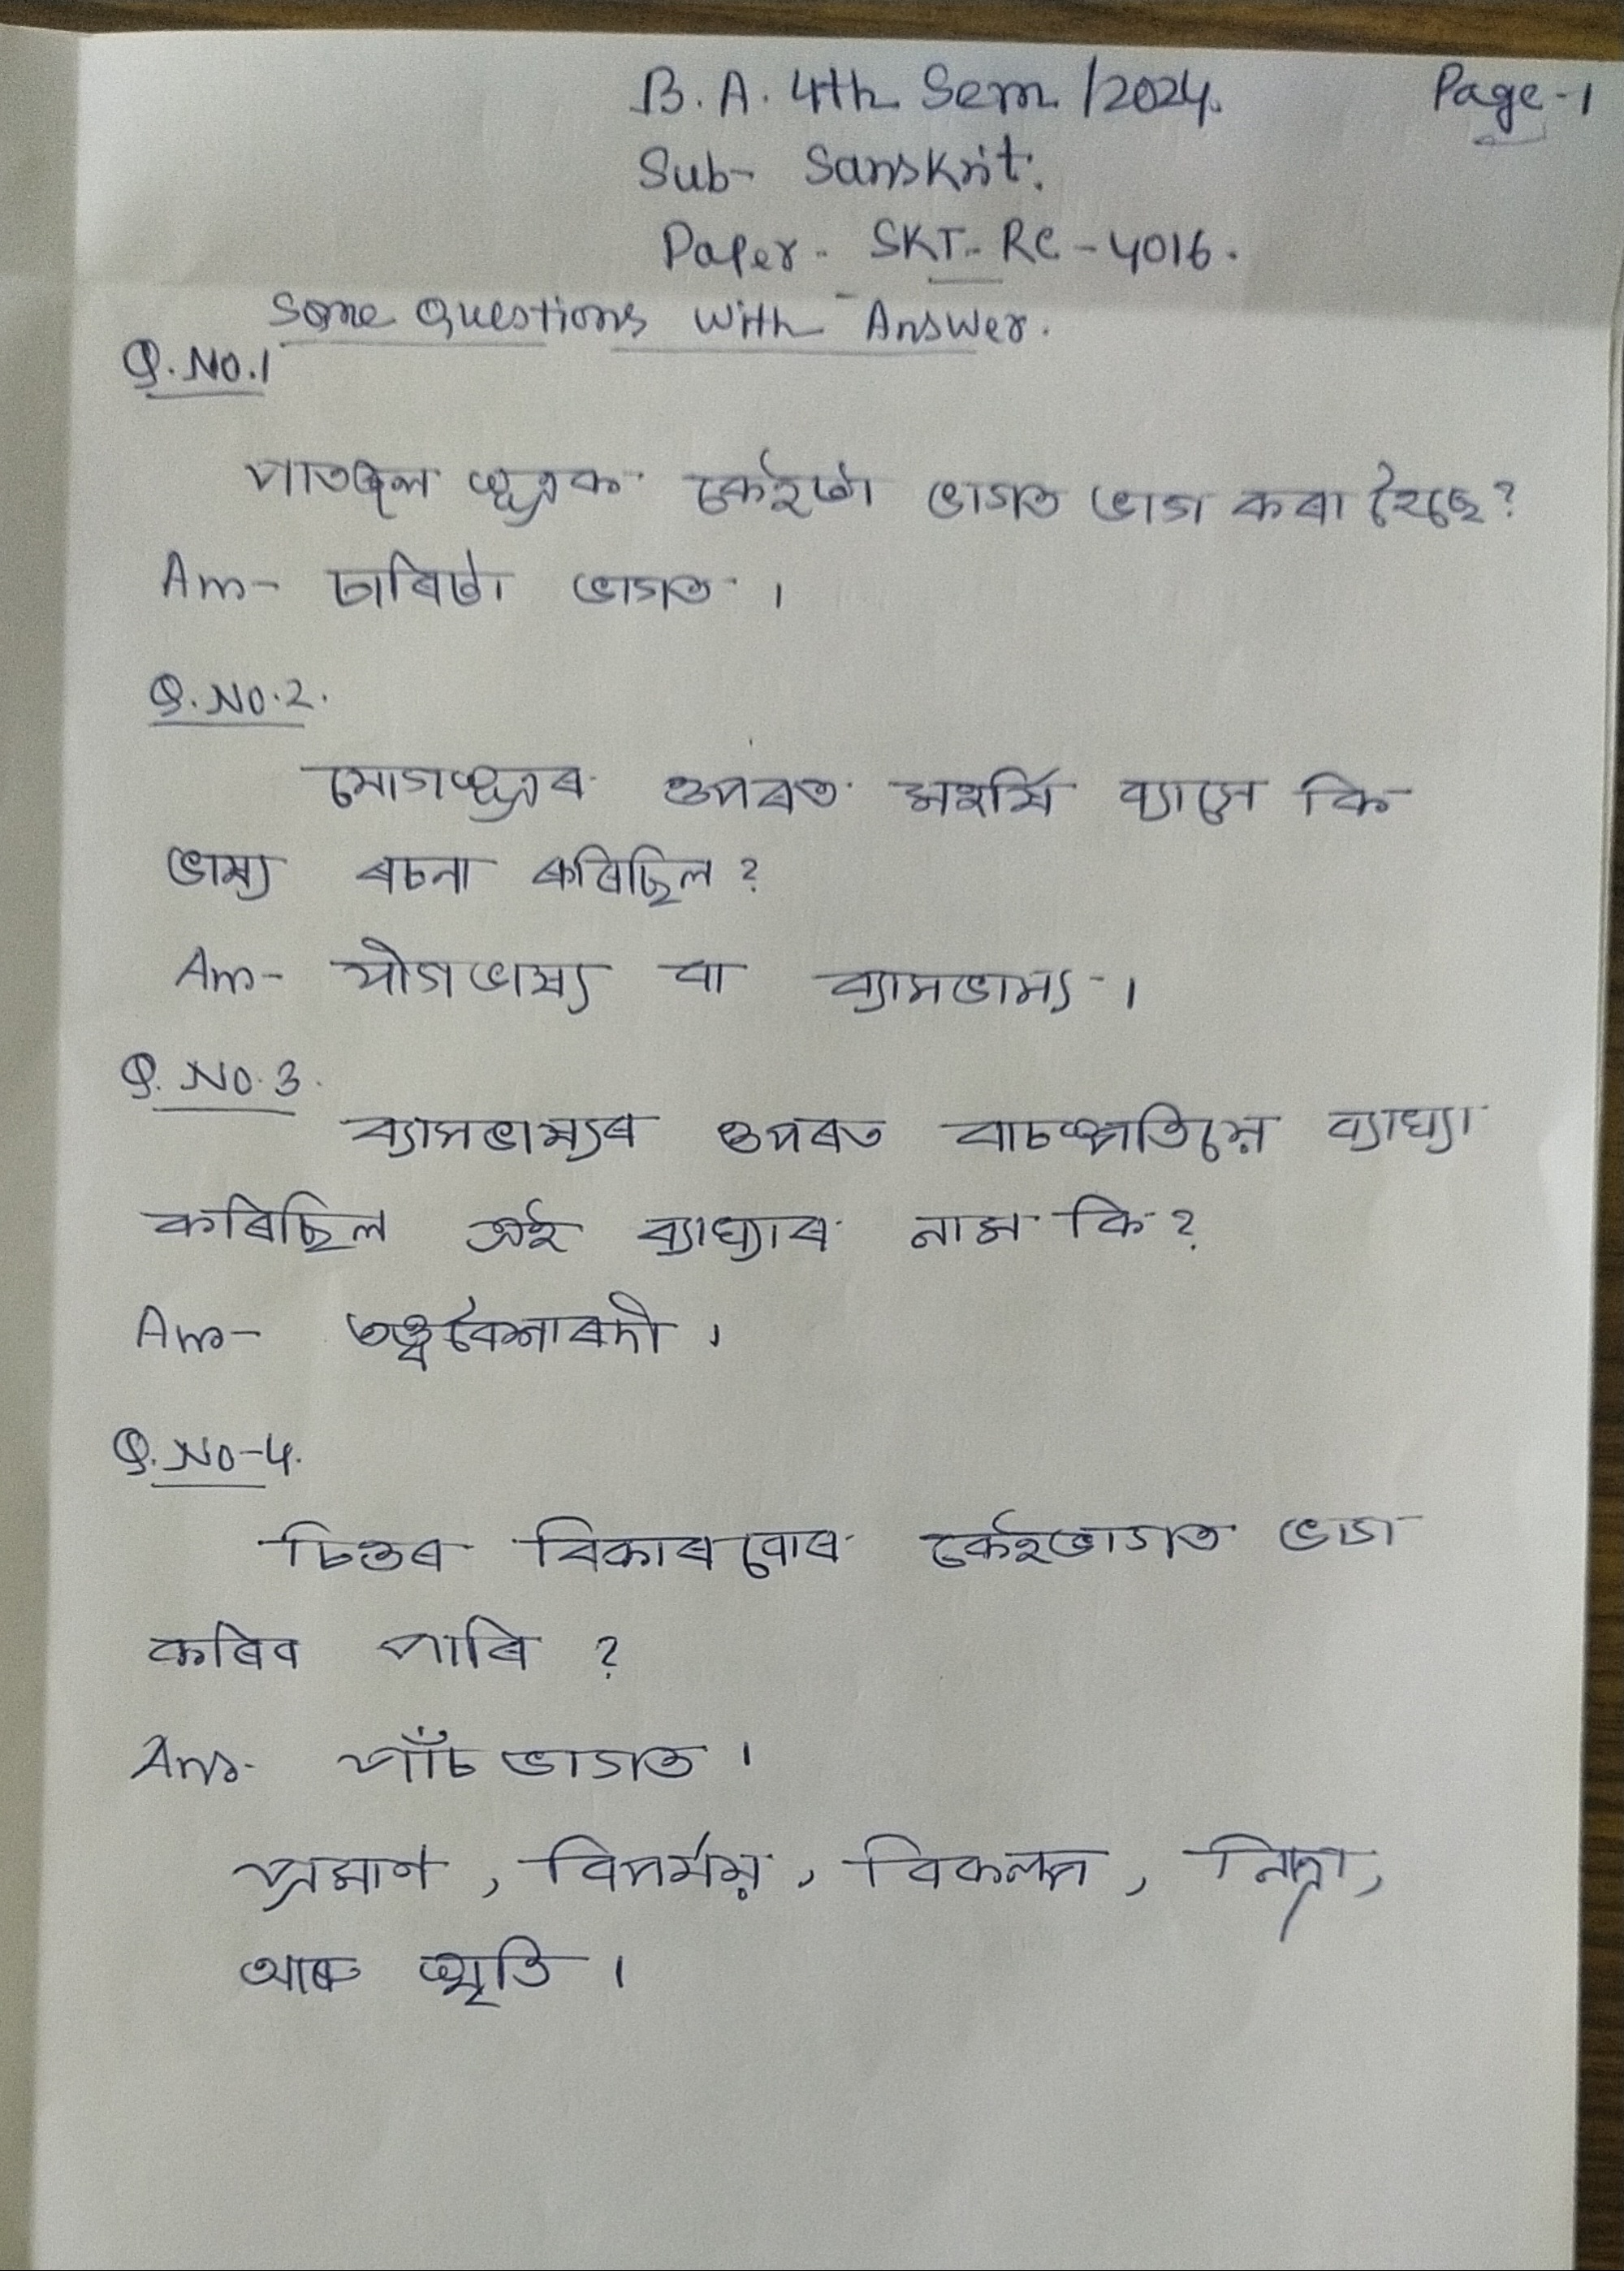 B.A. 4th Sem /2024. Page-1
Sub- Sanskrit.
Paper- SKT-RC-4016.
Some Questions with Answer.
Q.No.1
পাতঞ্জল সূত্ৰক কেইটা ভাগত ভাগ কৰা হৈছে?
Ans- চাৰিটা ভাগত ।
Q.No.2.
যোগসূত্ৰৰ ওপৰত মহৰ্ষি ব্যাসে কি
ভাষ্য ৰচনা কৰিছিল?
Ans- যোগভাষ্য বা ব্যাসভাষ্য ।
Q.No.3.
ব্যাসভাষ্যৰ ওপৰত বাচস্পতিয়ে ব্যাখ্যা
কৰিছিল এই ব্যাখ্যাৰ নাম কি?
Ans- তত্ত্ববৈশাৰদী ।
Q.No-4.
চিত্তৰ বিকাৰবোৰ কেইভাগত ভাগ
কৰিব পাৰি ?
Ans- পাঁচ ভাগত ।
প্ৰমাণ, বিপৰ্যয়, বিকল্প, নিদ্ৰা,
আৰু স্মৃতি ।